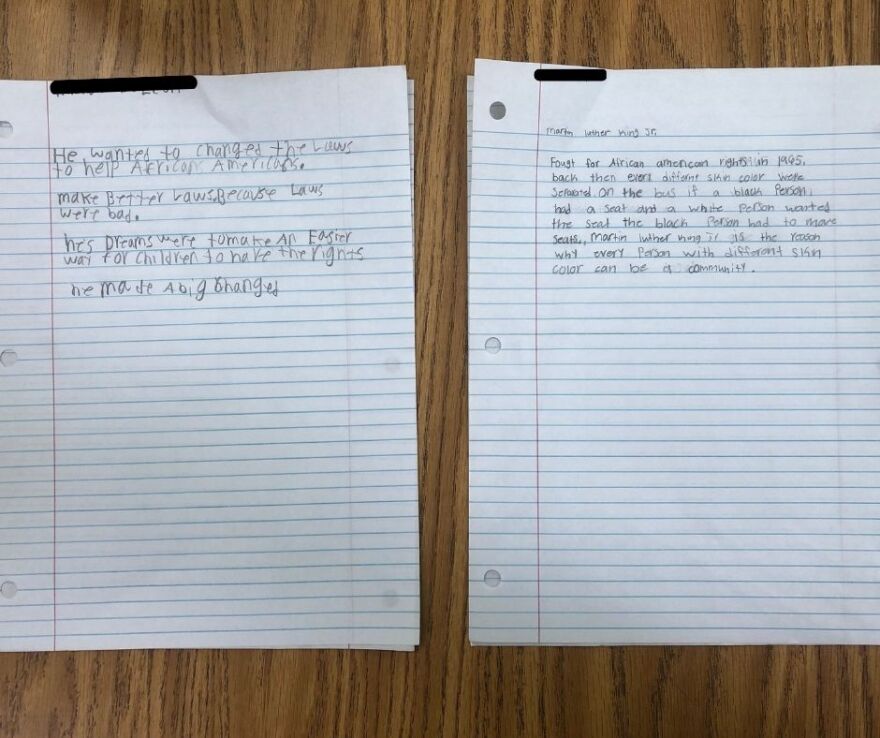 He wanted to changed the Laws
to help African Americans.
make Better Laws Because Laws
were bad.
he's Dreams were to make An Easier
way for children to have the rights
he made A big changed
Martin luther king Jr.
Fougt for African american rights in 1965,
back then every differnt skin color were
Separated. On the bus if a black Person,
had a seat and a white Person wanted
the seat the black Person had to move
seats, Martin luther king Jr is the reason
why every Person with different skin
color can be a community.